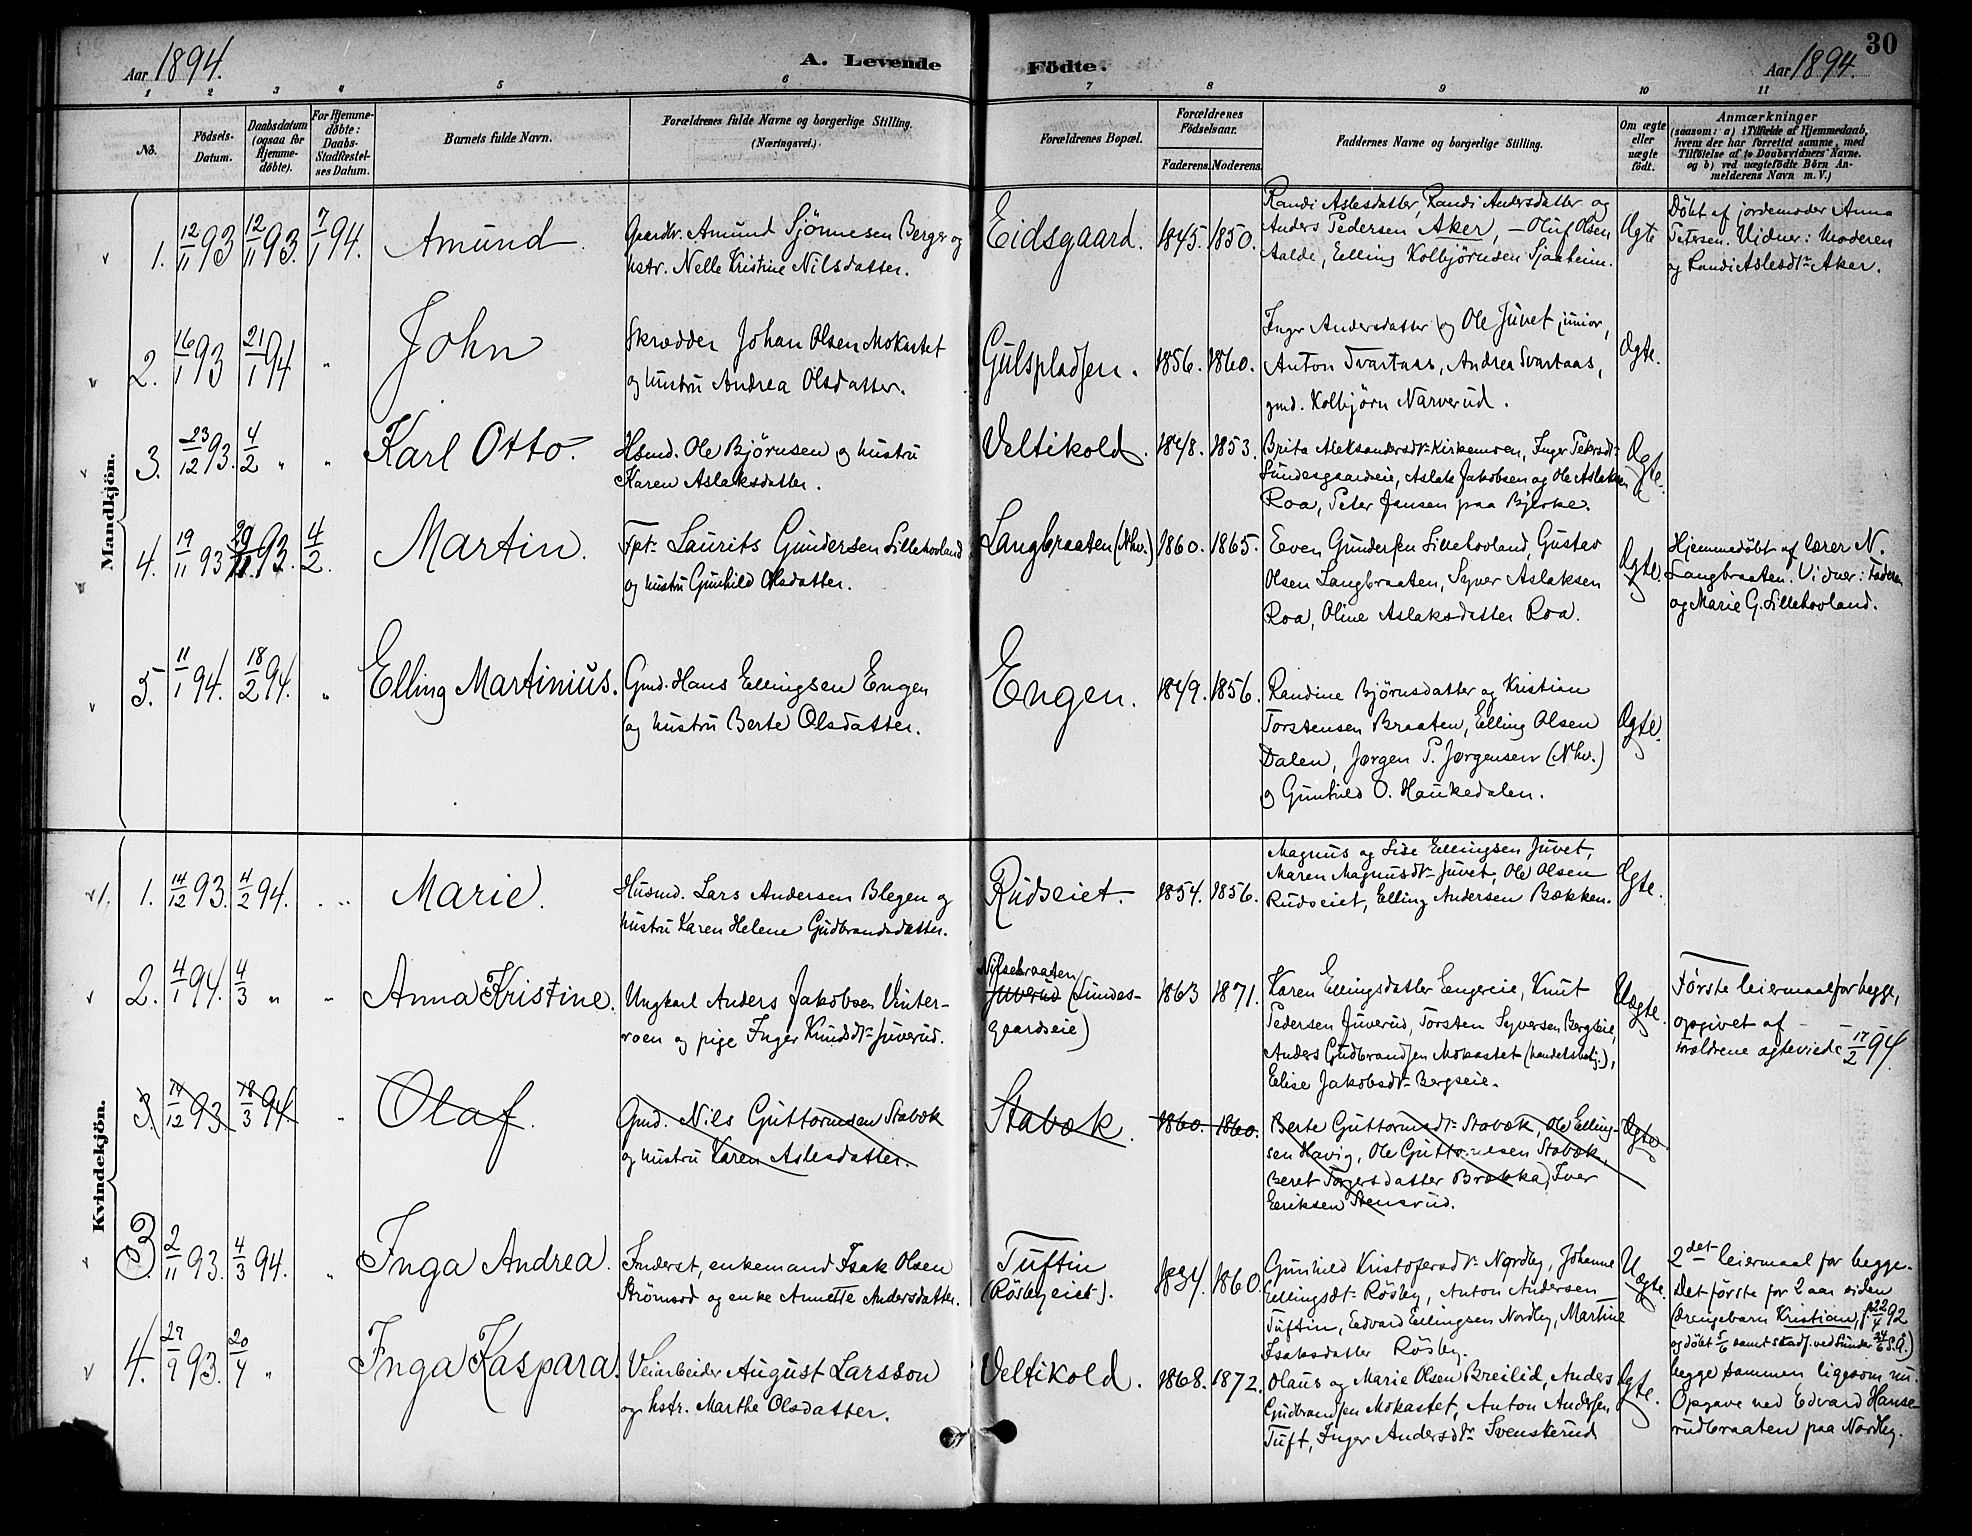 Aar 1894.
A. Levende
Födte.
Aar 1894.
30
1 2 3 4 5 6 7 8 9 10 11
No.
Födsels-Datum.
Daabsdatum (ogsaa for Hjemme-döbte).
For Hjemme-döbte: Daabs-Stadfæstel-ses Datum.
Barnets fulde Navn.
Forældrenes fulde Navne og borgerlige Stilling.
(Næringsvei.)
Forældrenes Bopæl.
Forældrenes Födselsaar.
Faderens. Moderens.
Faddernes Navne og borgerlige Stilling.
Om ægte eller uægte födt.
Anmærkninger
(saasom: a) i Tilfælde af Hjemmedaab,
hvem der har forrettet samme, med
Tilföielse af to Daabsvidners Navne.
og b) ved uægtefödte Börn An-
melderens Navn m. V.)
Mandkjön.
1. 12/11 93 12/11 93. 7/1 94. Amund.
Gaardbr. Amund Sjönnesen Berger og
hstr. Nelle Kristine Nilsdatter.
Eidsgaard. 1845. 1850.
Randi Aslesdatter, Randi Andersdatter og
Anders Pedersen Aker, – Oluf Olsen
Aalde, Elling Kolbjörnsen Sjaaheim.
Ægte
Döbt af jordemoder Anna
Petersen. Vidner: Moderen
og Randi Aslesdtr Aker.
2. 16/1 93 21/1 94 " John
Skrædder Johan Olsen Mokastet
og hustru Andrea Olsdatter.
Gulspladsen. 1856. 1860.
Inger Andersdatter og Ole Juvet junior,
Anton Svartaas, Andrea Svartaas,
gmd. Kolbjörn Narverud.
Ægte.
3. 23/12 93. 4/2 " " Karl Otto.
Hsmd. Ole Björnsen og hustru
Karen Aslaksdatter.
Veltikold. 1848. 1853.
Brita Aleksandersdtr Kirkemoen, Inger Pedersdtr
Sundesgaardeie, Aslak Jakobsen og Ole Aslaksen
Roa, Peter Jansen paa Bjerke.
Ægte.
4. 19/11 93 93. 4/2. Martin.
Fpt. Laurits Gundersen Lillehovland
og hustru Gunhild Olsdatter.
Langbraaten (Nhv.) 1860. 1865.
Even Gundersen Lillehovland, Gustav
Olsen Langbraaten, Syver Aslaksen
Roa, Oline Aslaksdatter Roa.
Ægte.
Hjemmedöbt af lærer N.
Langbraaten. Vidner: Faderen
og Marie G. Lillehovland.
5. 11/1 94. 18/2 94. " Elling Martinius.
Gmd. Hans Ellingsen Engen
og hustru Berte Olsdatter.
Engen. 1849. 1856.
Randine Björnsdatter og Kristian
Torstensen Braaten, Elling Olsen
Dalen, Jørgen P. Jørgensen (Nhv.)
og Gunhild O. Haukedalen.
Ægte.
Kvindekjön.
1. 14/12 93. 4/2 94. " Marie.
Husmd. Lars Andersen Blegen og
hustru Karen Helene Gudbrandsdatter.
Rudseiet. 1854. 1856.
Magnus og Lise Ellingsen Juvet,
Maren Magnusdtr Juvet, Ole Olsen
Rudseiet, Elling Andersen Bækken.
Ægte.
2. 4/1 94. 4/3 " " Anna Kristine.
Ungkarl Anders Jakobsen Vinter-
roen og pige Inger Knudsdtr Juverud.
Nilsebraaten
Juverud (Sundes-
gaardseie)
1863 1871.
Karen Ellingsdatter Engereie, Knut
Pedersen Juverud, Torsten Syversen Bergseie,
Anders Gudbrandsen Mokastet (handelsbetj.),
Elise Jakobsdtr Bergseie.
Uægte.
Første leiermaal for begge,
opgivet af –
forældrene ægteviede 17/2 94.
3. 14/12 93 18/3 94. " Olaf.
Gmd. Nils Guttormsen Stabæk
og hustru Karen Aslesdatter.
Stabæk. 1860. 1860.
Berte Guttormsdtr Stabæk, Ole Elling-
sen Havig, Ole Guttormsen Stabæk,
Beret Torgersdatter Brakka, Iver
Eriksen Stensrud.
Ægte
3. 2/11 93. 4/3 94. " Inga Andrea.
Inderst, enkemand Isak Olsen
Strömsod og enke Annette Andersdatter.
Tuftin
(Rösbyeiet).
1834. 1860.
Gunhild Kristofersdtr Nordby, Johanne
Ellingsdtr Rösby, Anton Andersen
Tuftin, Edvard Ellingsen Nordby, Martine
Isaksdatter Rösby.
Uægte.
2det leiermaal for begge.
Det første for 2 aar siden
(drengebarn Kristian, f. 22/4 92
og döbt 5/6 samt stadf. ved Sunder 24/6 s. A.)
begge sammen ligesom nu.
Opgave ved Edvard Hanse-
rudbraaten paa Nordby.
4. 27/9 93. 20/4 " Inga Kaspara.
Veiarbeider August Larsson
og hstr. Marthe Olsdatter.
Veltikold. 1868. 1872.
Olaus og Marie Olsen Breilid, Anders
Gudbrandsen Mokastet, Anton Andersen
Tuft, Inger Andersdtr Svenskerud
Ægte.